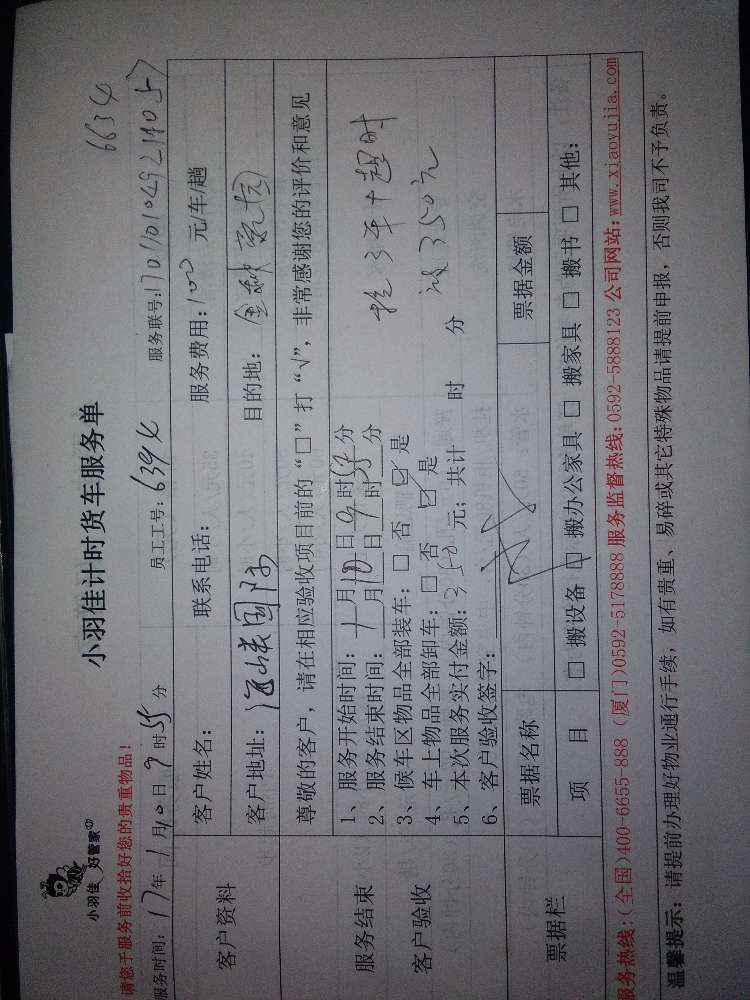 小羽佳 好管家
小羽佳计时货车服务单
6634
请您于服务前收拾好您的贵重物品！
服务时间：17年1月10日9时55分 员工工号：6394 服务联号：
客户资料
客户姓名： 联系电话： 服务费用：100 元/车/趟
客户地址： 国际 目的地：
尊敬的客户，请在相应验收项目前的“□”打“√”，非常感谢您的评价和意见
服务结束
客户验收
1、服务开始时间：1月10日9时57分
2、服务结束时间： 月10日 时58分
3、候车区物品全部装车：□ 否 ☑ 是
4、车上物品全部卸车：□ 否 ☑ 是
5、本次服务实付金额：350元；共计 时 分
6、客户验收签字：
3车+超时
350元
票据栏
票据名称 票据金额
项 目 □ 搬设备 □ 搬办公家具 □ 搬家具 □ 搬书 □ 其他：
服务热线：(全国)400-6655-888 (厦门)0592-5178888 服务监督热线：0592-5888123 公司网站：www.xiaoyujia.com
温馨提示：请提前办理好物业通行手续，如有贵重、易碎或其它特殊物品请提前申报，否则我司不予负责。